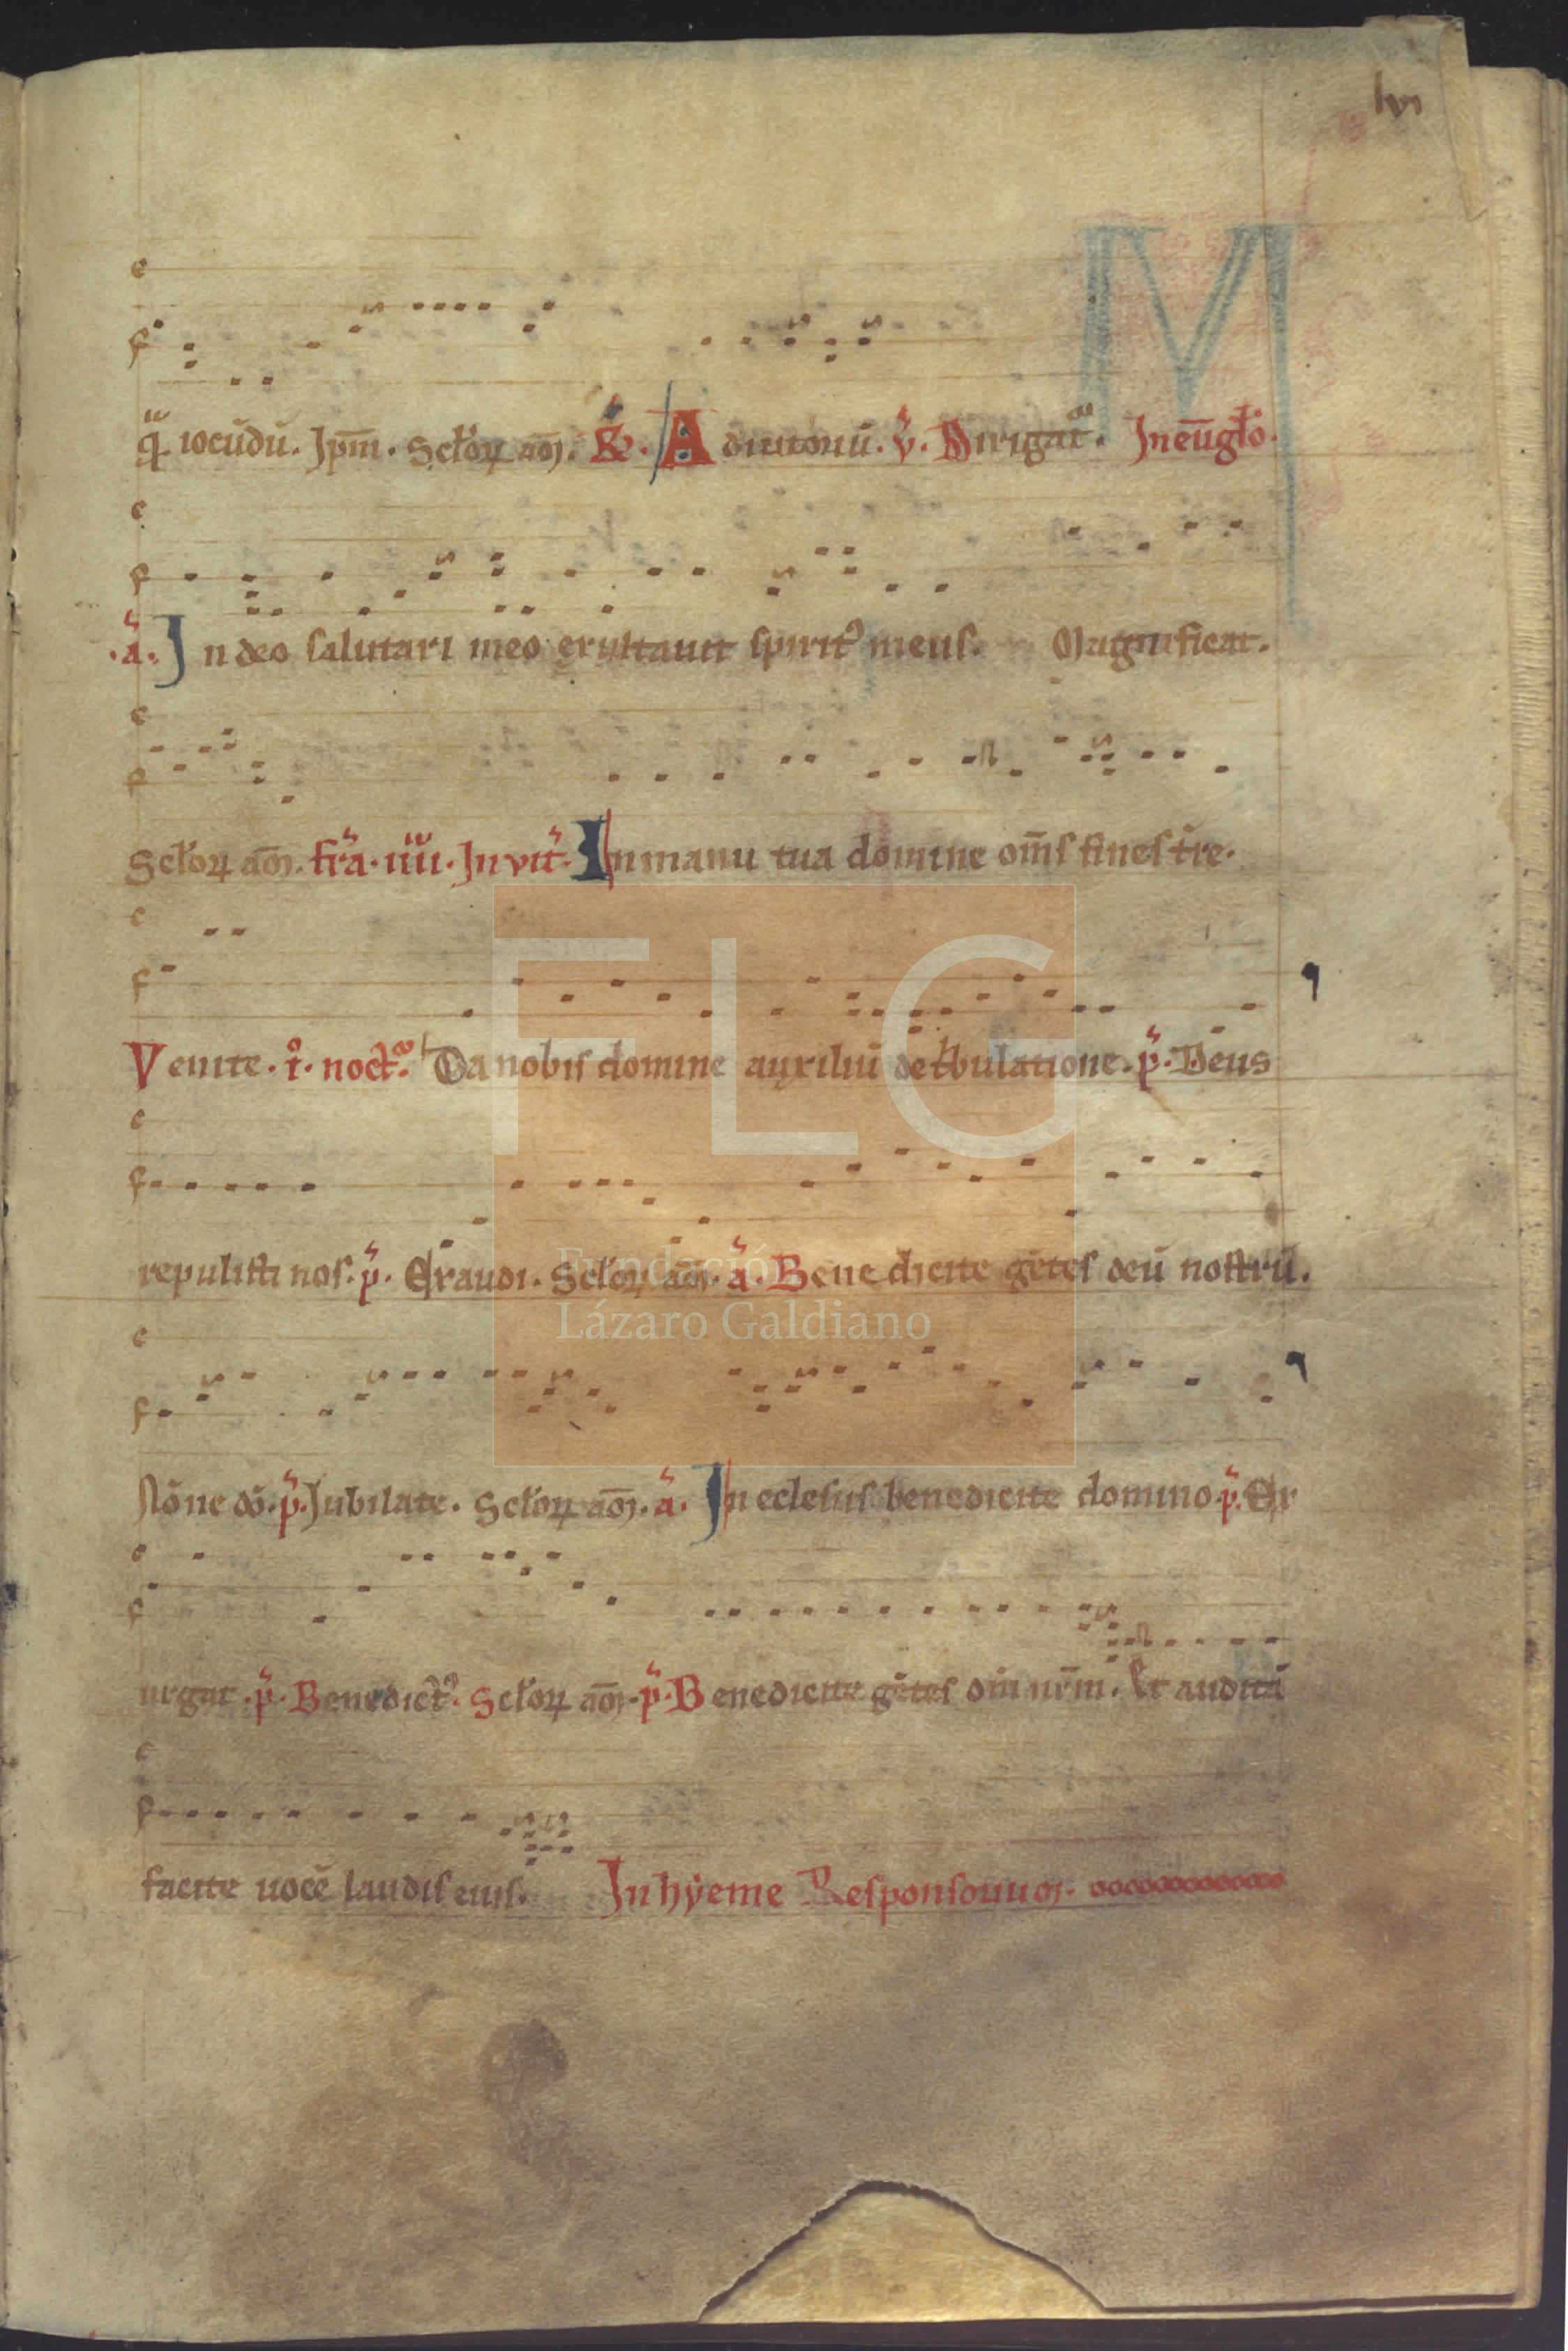 lvi
q̃ iocũdũ. Ip̄m. Scl̃oꝝ am̄. ℟. Adiutoriũ. ṽ. Dirigat᷑. In eũgl̃o.
ã. In deo salutari meo exultauit spiritꝰ meus. Magnificat.
Scl̃oꝝ am̄. fr̃a. iiii. Inuit̃. In manu tua domine om̄s fines tr̃e.
Venite. i. noct̃. Da nobis domine auxiliũ de tⁱbulatione. p̃. Deus
repulisti nos. p̃. Exaudi. Scl̃oꝝ am̄. ã. Benedicite gẽtes deũ nostrũ.
p̃. Iubilate. Scl̃oꝝ am̄. ã. In eclesiis benedicite domino. p̃. Ex
urgat. p̃. Benedict̃ꝰ. Scl̃oꝝ am̄. p̃. Benedicite gẽtes dñm nr̄m. Et auditã
facite uocẽ laudis eius. In hẏeme Responsoriuȝ.
FLG
Fundación
Lázaro Galdiano